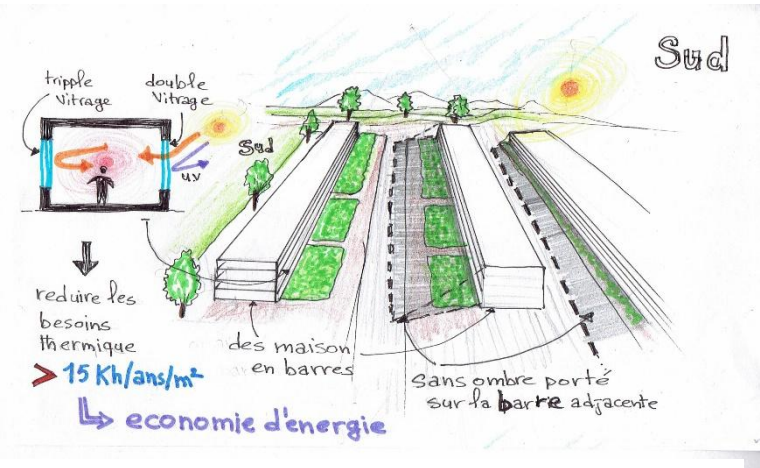 Sud
tripple
Vitrage
double
Vitrage
Sud
u.v
reduire les
besoins
thermique
> 15 Kh/ans/m²
economie d'énergie
des maison
en barres
Sans ombre porté
sur la barre adjacente